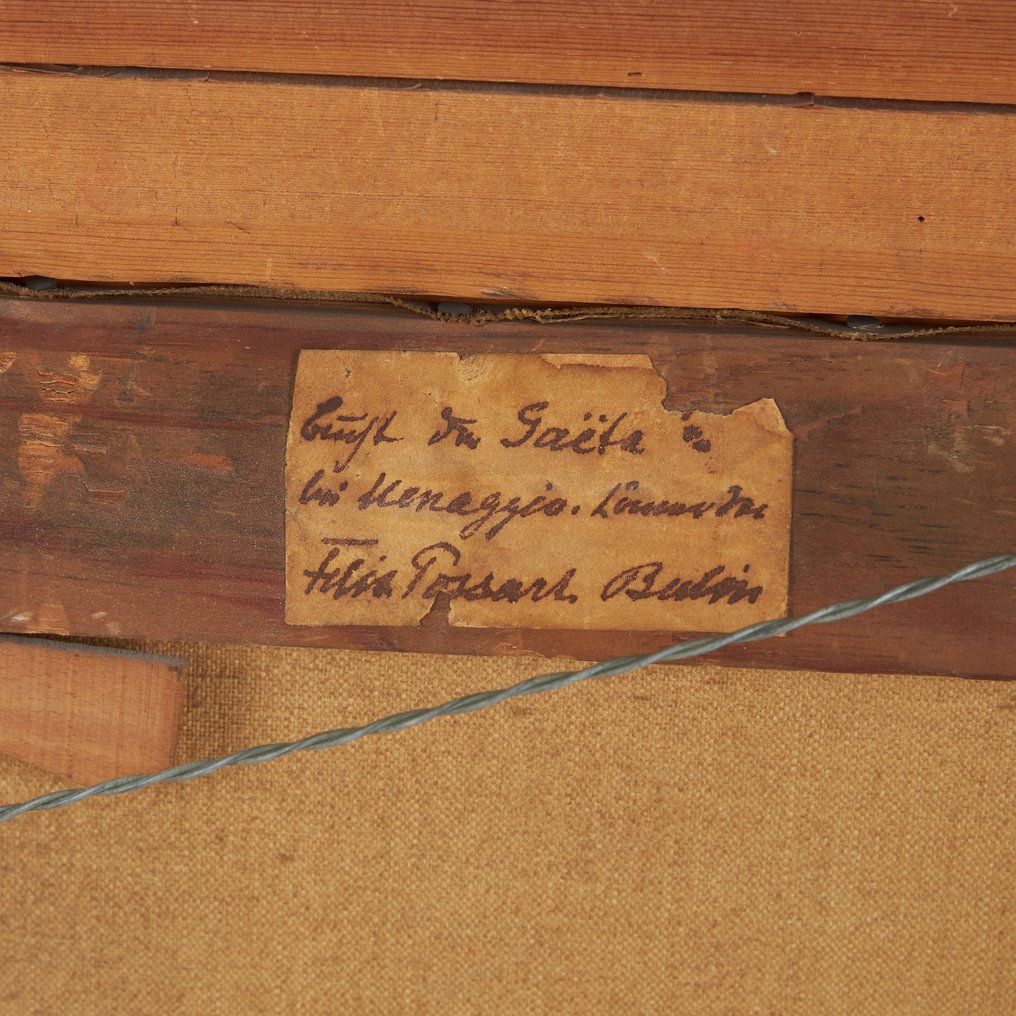 bucht der Gaëta
bei Menaggio.
Felix Possart. Berlin